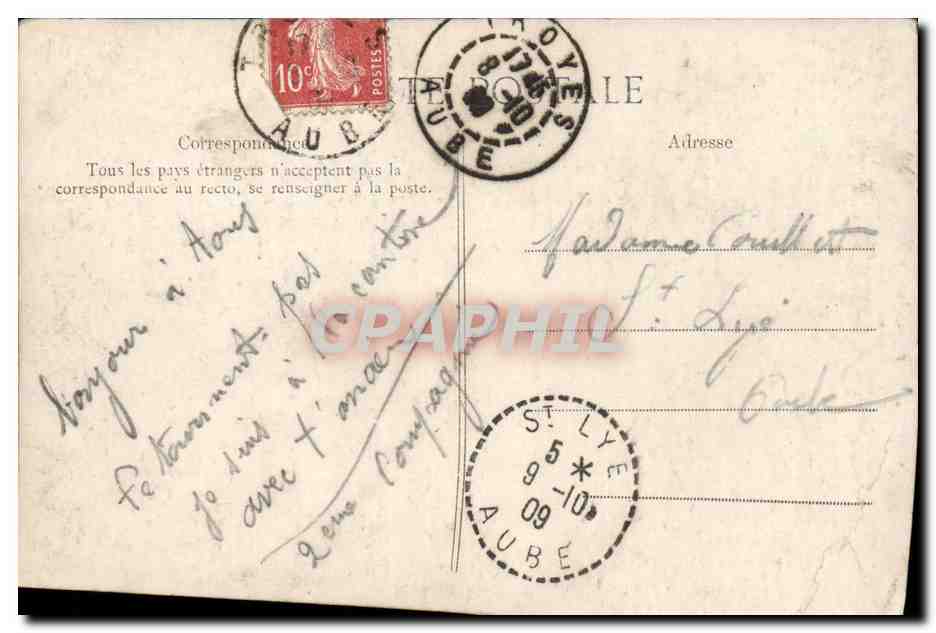 10c
POSTES
AUBE
TROYES
17
8 -10
09
AUBE
TE POSTALE
Correspondance
Adresse
Tous les pays étrangers n'acceptent pas la
correspondance au recto, se renseigner à la poste.
bonjour à tous
pas
je suis à la cantine
avec
2eme Compagnie
Madame Couillot
St. Lyé
Aube
CPAPHIL
ST LYE
5 *
9 -10
09
AUBE